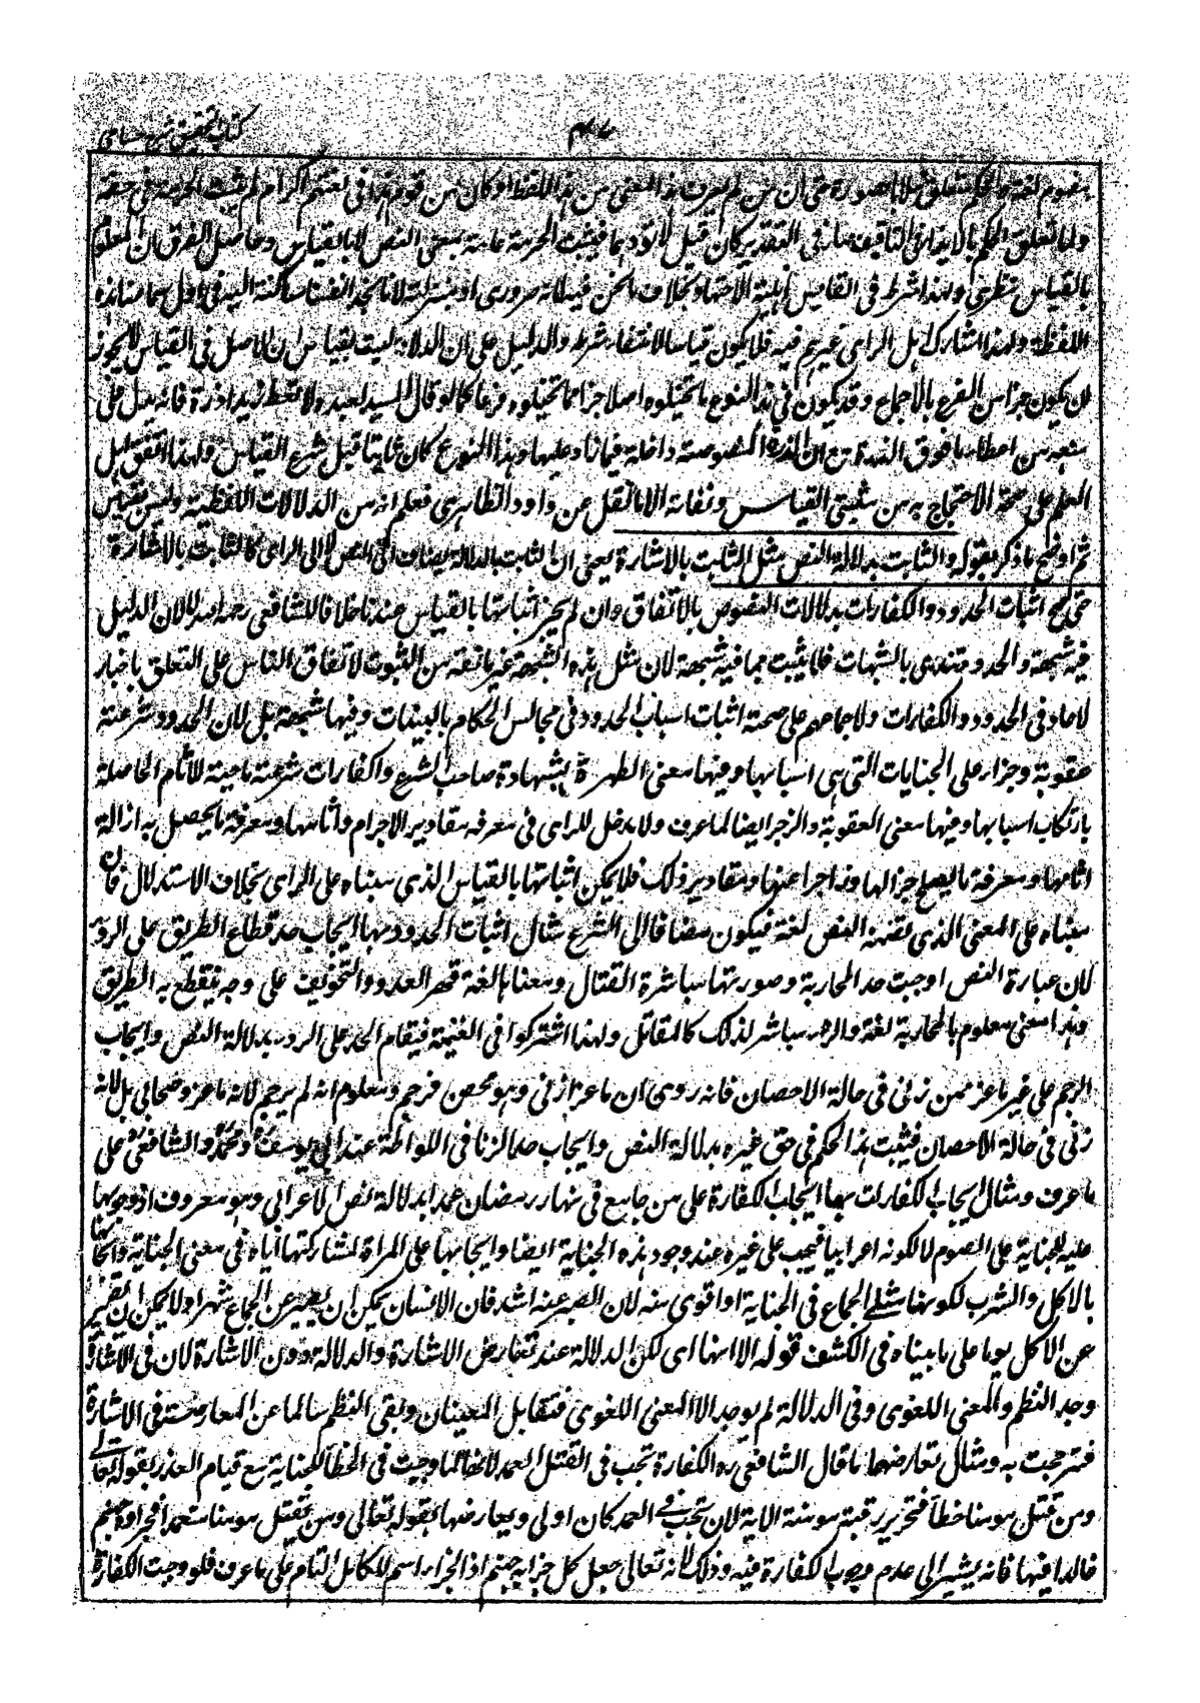 كتاب التحقيق شرح حسامى
٤٧
مفهوم لغة والحكم متعلق به لا بالصورة حتى ان من لم يعرف هذا المعنى من هذا اللفظ او كان من قوم هذا فى لغتهم اكرام لم تثبت الحرمة فى حقه
ولما تعلق الحكم بالايذاء فى التافيف صار فى التقدير كان قيل لا تؤذهما فيثبت الحرمة عامة بمعنى النص لا بالقياس وحاصل الفرق ان المعلوم
بالقياس نظرى ولهذا شرط فى القائس اهلية الاجتهاد بخلاف ما نحن فيه لانه ضرورى او بمنزلته لانا نجد انفسنا ساكنة اليه فى اول سماعنا هذه
اللفظة ولهذا شارك اهل الراى غيرهم فيه فلا يكون قياسا لانتفاء شرطه والدليل على ان الدلالة ليست بقياس ان الاصل فى القياس لا يجوز
ان يكون جزء من الفرع بالاجماع وقد يكون فى هذا النوع ما تخيلوه اصلا جزء مما تخيلوه فرعا كما لو قال السيد لعبده ولا تعط زيدا ذرة فانه يدل على
منعه من اعطاء ما فوق الذرة مع ان الذرة المنصوصة داخلة فيما زاد عليها وهذا النوع كان ثابتا قبل شرع القياس ولهذا اتفق اهل
العلم على صحة الاحتجاج به من مثبتى القياس ونفاته الا ما نقل عن داود الظاهرى فعلم انه من الدلالات اللفظية وليس بقياس
ثم اوضح ما ذكر بقوله والثابت بدلالة النص مثل الثابت بالاشارة يعنى ان الثابت بالدلالة يضاف الى النص لا الى الراى كالثابت بالاشارة
حتى صح اثبات الحدود والكفارات بدلالات النصوص بالاتفاق وان لم يجز اثباتها بالقياس عندنا خلافا للشافعى رحمه الله لا لان الدليل
فيه شبهة والحدود تندرى بالشبهات فلا يثبت بما فيه شبهة لان مثل هذه الشبهة غير مانعة من الثبوت لاتفاق الناس على التعلق باخبار
الاحاد فى الحدود والكفارات ولاجماعهم على صحة اثبات اسباب الحدود فى مجالس الحكام بالبينات وفيها شبهة بل لان الحدود شرعت
عقوبة وجزاء على الجنايات التى هى اسبابها وفيها معنى الطهرة بشهادة صاحب الشرع والكفارات شرعت ماحية للاثام الحاصلة
بارتكاب اسبابها وفيها معنى العقوبة والزجر ايضا لما عرف ولا مدخل للراى فى معرفة مقادير الاجرام واثامها ومعرفة ما يحصل به ازالة
اثامها ومعرفة ما يصلح جزاء لها وزاجرا عنها ومقادير ذلك فلا يمكن اثباتها بالقياس الذى مبناه على الراى بخلاف الاستدلال فان
مبناه على المعنى الذى تضمنه النص لغة فيكون مضافا الى الشرع مثال اثبات الحدود بها ايجاب حد قطاع الطريق على الردء
لان عبارة النص اوجبت حد المحاربة وصورتها مباشرة القتال ومعناها لغة قهر العدو والتخويف على وجه ينقطع به الطريق
وهذا معنى معلوم بالمحاربة لغة والردء مباشر لذلك كالمقاتل ولهذا اشتركوا فى الغنيمة فيقام الحد على الردء بدلالة النص وايجاب
الرجم على غير ماعز ممن زنى فى حالة الاحصان فانه روى ان ماعزا زنى وهو محصن فرجم ومعلوم انه لم يرجم لانه ماعز وصحابى بل لانه
زنى فى حالة الاحصان فيثبت هذا الحكم فى حق غيره بدلالة النص وايجاب حد الزنا فى اللواطة عند ابى يوسف ومحمد والشافعى على
ما عرف ومثال ايجاب الكفارات بها ايجاب الكفارة على من جامع فى نهار رمضان عمدا بدلالة نص الاعرابى وهو معروف اذ وجوبها
عليه للجناية على الصوم لا لكونه اعرابيا فيجب على غيره عند وجود هذه الجناية ايضا وايجابها على المراة لمشاركتها اياه فى معنى الجناية وايجابها
بالاكل والشرب لكونهما مثل الجماع فى الجناية او اقوى منه لان الصبر عنه اشد فان الانسان يمكن ان يصبر عن الجماع شهرا ولا يمكن ان يصبر
عن الاكل يوما على ما بيناه فى الكشف قوله الا انها اى لكن الدلالة عند تعارض الاشارة والدلالة دون الاشارة لان فى الاشارة
وجد النظم والمعنى اللغوى وفى الدلالة لم يوجد الا المعنى اللغوى فتقابل المعنيان وبقى النظم سالما عن المعارضة فى الاشارة
فترجحت به ومثال تعارضهما ما قال الشافعى ره الكفارة تجب فى القتل العمد لانها لما وجبت فى الخطأ للجناية مع قيام العذر بقوله تعالى
ومن قتل مؤمنا خطأ فتحرير رقبة مؤمنة الاية لان تجب فى العمد كان اولى ويعارضها قوله تعالى ومن يقتل مؤمنا متعمدا فجزاؤه جهنم
خالدا فيها فانه يشير الى عدم وجوب الكفارة فيه وذلك لانه تعالى جعل كل جزائه جهنم اذ الجزاء اسم للكامل التام على ما عرف فلو وجبت الكفارة